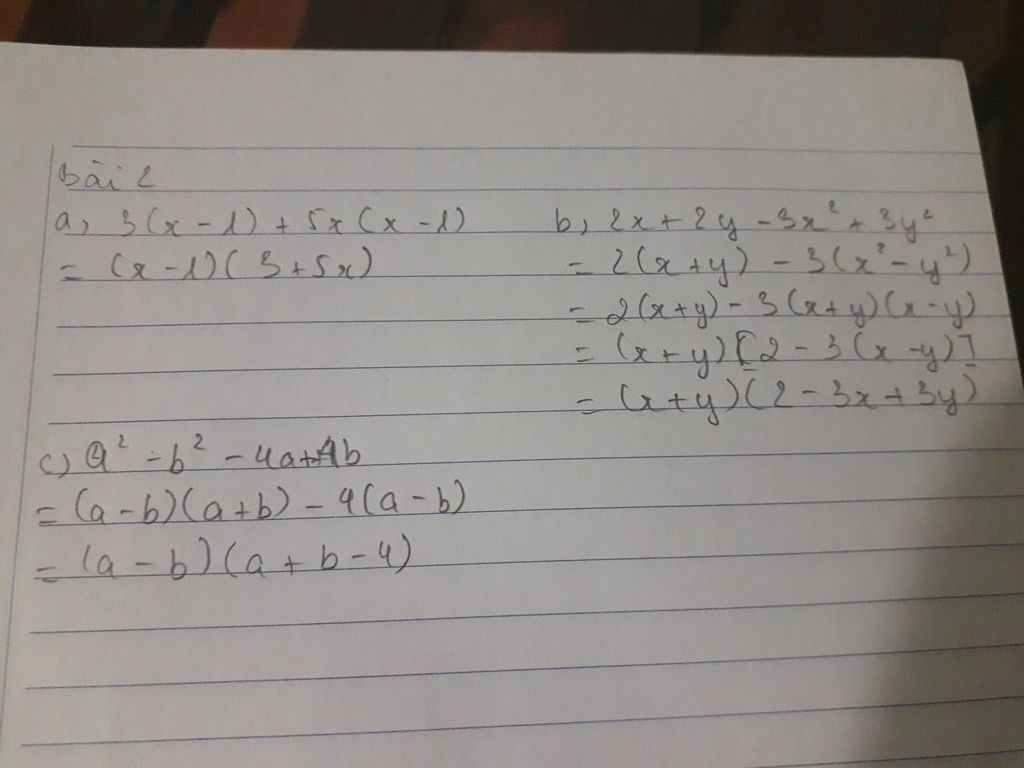 bài 2
a, 3(x - 1) + 5x(x - 1)
= (x - 1)(3 + 5x)
b, 2x + 2y - 3x² + 3y²
= 2(x + y) - 3(x² - y²)
= 2(x + y) - 3(x + y)(x - y)
= (x + y)[2 - 3(x - y)]
= (x + y)(2 - 3x + 3y)
c) a² - b² - 4a + 4b
= (a - b)(a + b) - 4(a - b)
= (a - b)(a + b - 4)